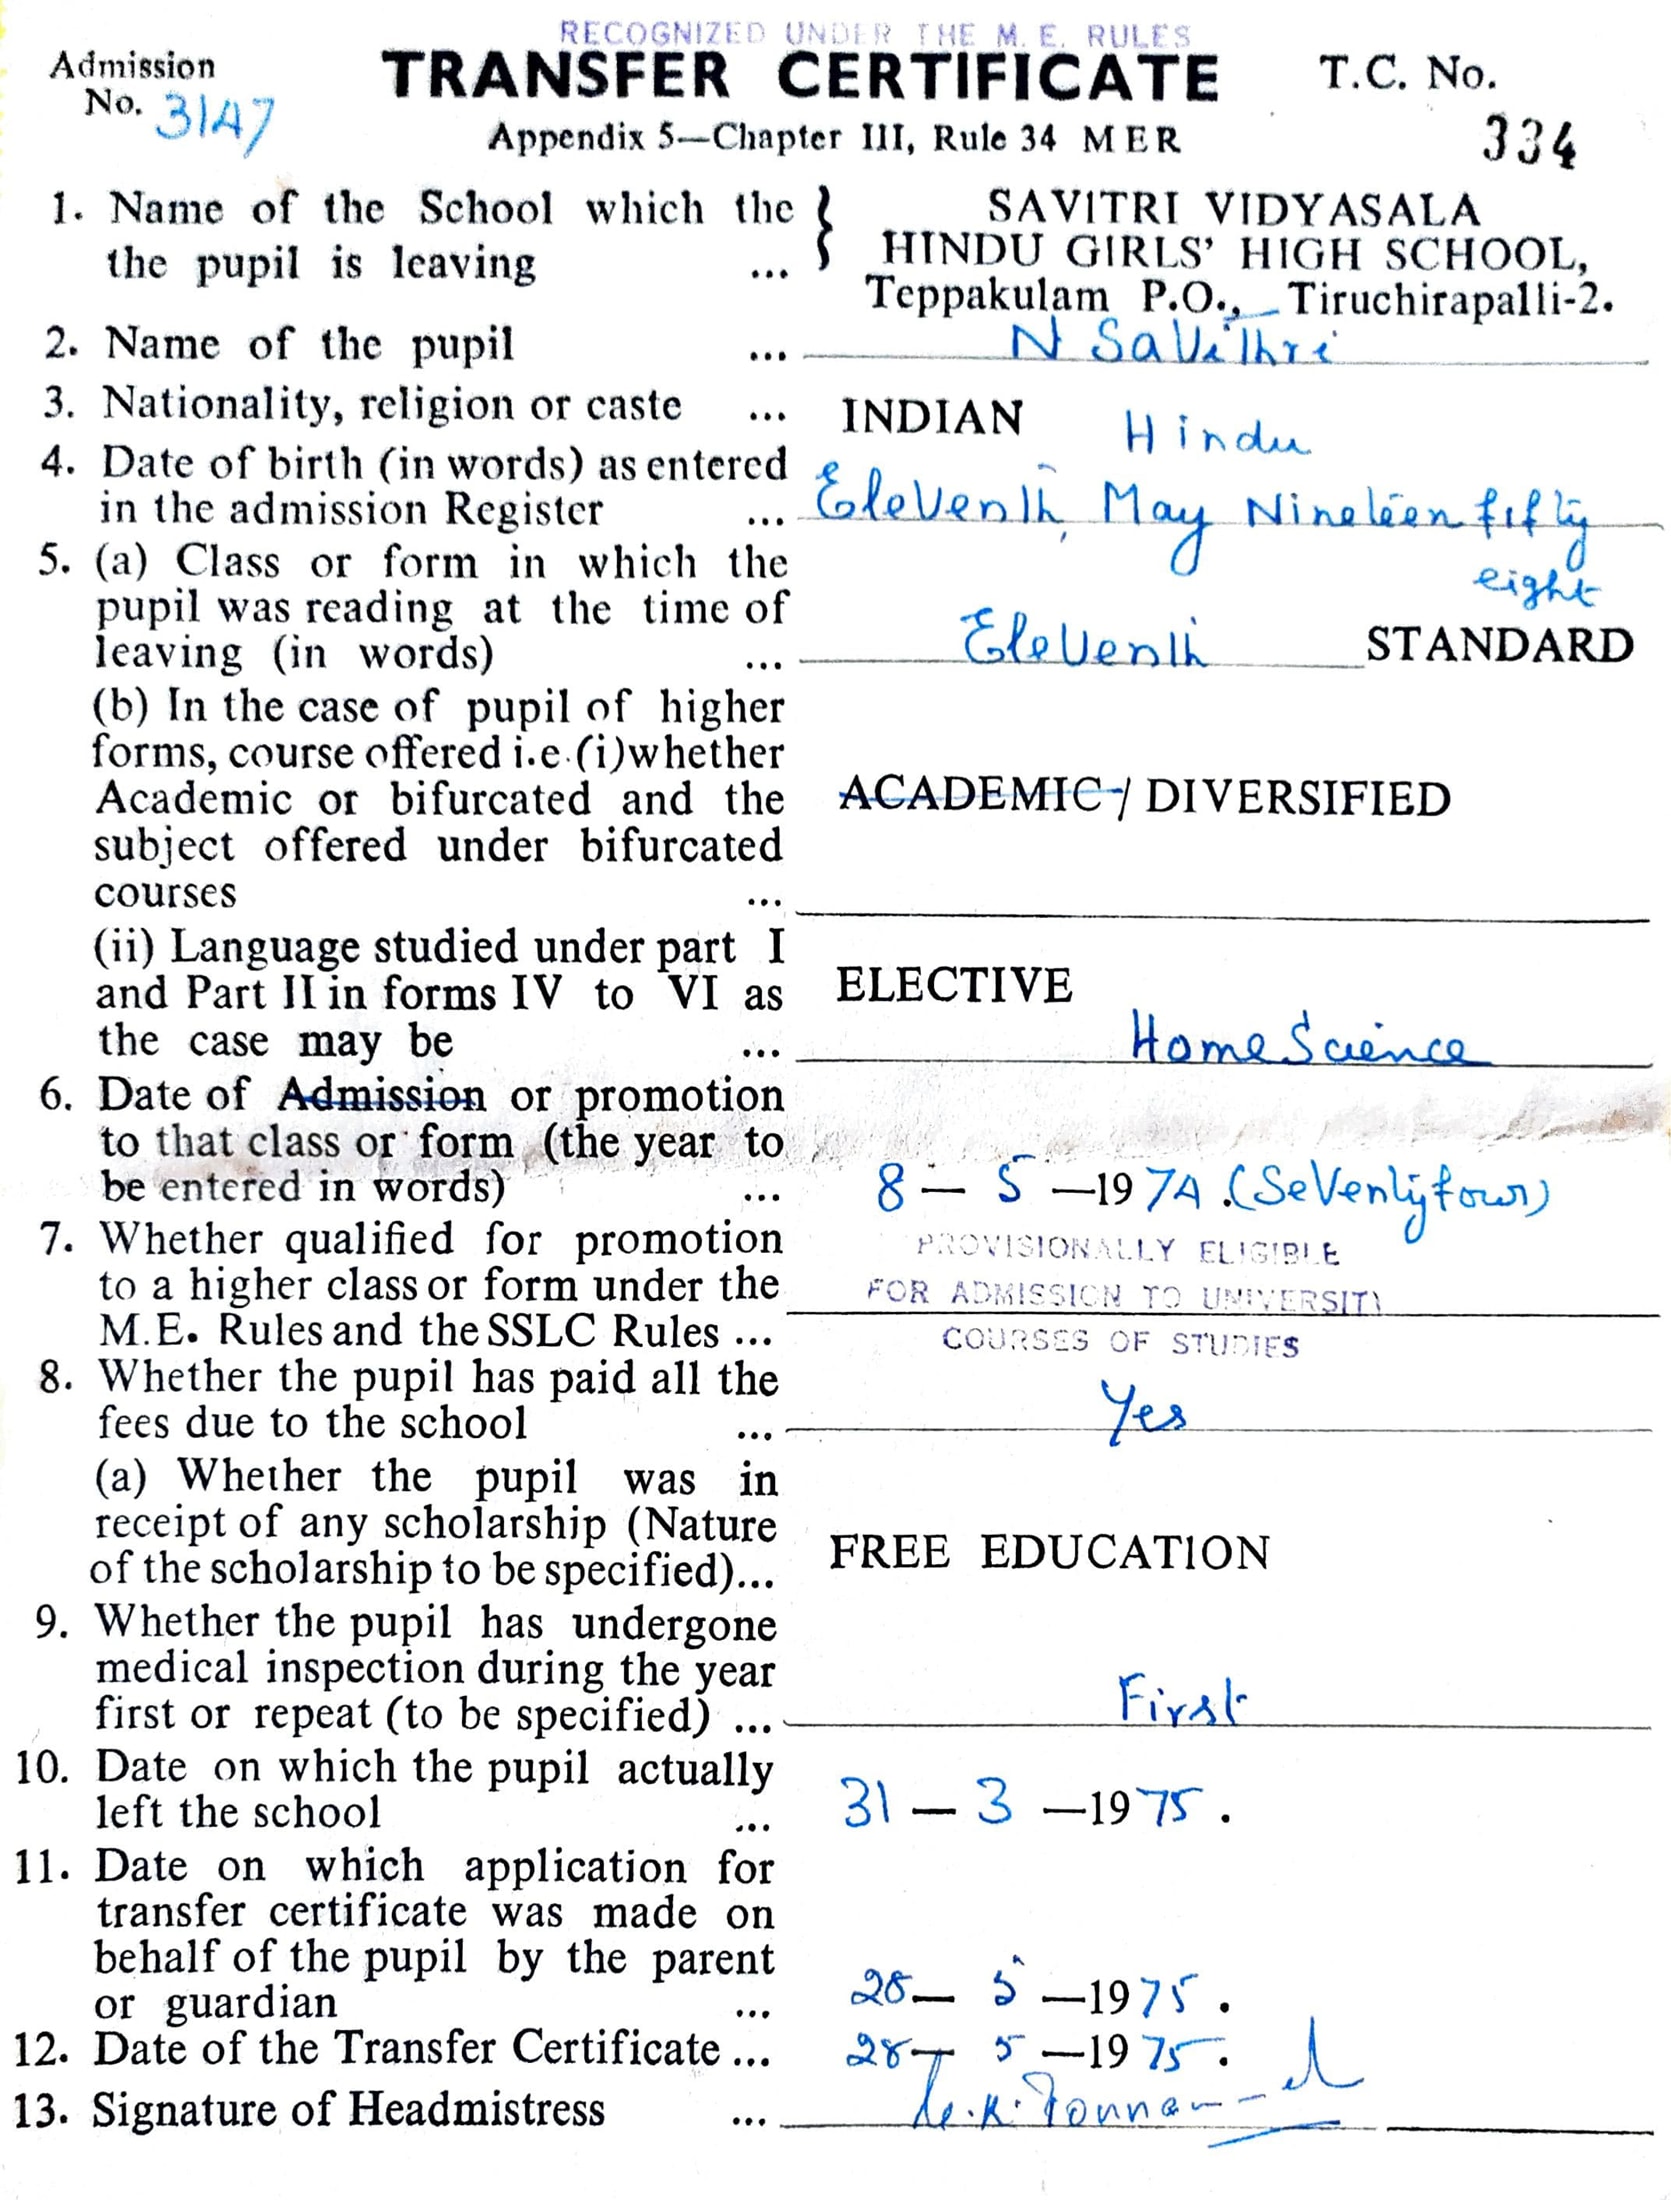 RECOGNIZED UNDER THE M. E. RULES
Admission No. 3147
TRANSFER CERTIFICATE
T.C. No. 334
Appendix 5—Chapter III, Rule 34 MER
1. Name of the School which the } SAVITRI VIDYASALA
HINDU GIRLS' HIGH SCHOOL,
the pupil is leaving ... Teppakulam P.O., Tiruchirapalli-2.
2. Name of the pupil ... N Savithri
3. Nationality, religion or caste ... INDIAN Hindu
4. Date of birth (in words) as entered
in the admission Register ... Eleventh, May Nineteen fifty
eight
5. (a) Class or form in which the
pupil was reading at the time of
leaving (in words) ... Eleventh STANDARD
(b) In the case of pupil of higher
forms, course offered i.e.(i)whether
Academic or bifurcated and the ACADEMIC / DIVERSIFIED
subject offered under bifurcated
courses ...
(ii) Language studied under part I
and Part II in forms IV to VI as ELECTIVE
the case may be ... Home Science
6. Date of Admission or promotion
to that class or form (the year to
be entered in words) ... 8 — 5 —1974. (Seventyfour)
7. Whether qualified for promotion PROVISIONALLY ELIGIBLE
to a higher class or form under the FOR ADMISSION TO UNIVERSITY
M.E. Rules and the SSLC Rules ... COURSES OF STUDIES
8. Whether the pupil has paid all the
fees due to the school ... Yes
(a) Whether the pupil was in
receipt of any scholarship (Nature
of the scholarship to be specified)... FREE EDUCATION
9. Whether the pupil has undergone
medical inspection during the year
first or repeat (to be specified) ... First
10. Date on which the pupil actually
left the school ... 31 — 3 —1975.
11. Date on which application for
transfer certificate was made on
behalf of the pupil by the parent
or guardian ... 28— 5 —1975.
12. Date of the Transfer Certificate ... 28— 5 —1975.
13. Signature of Headmistress ...